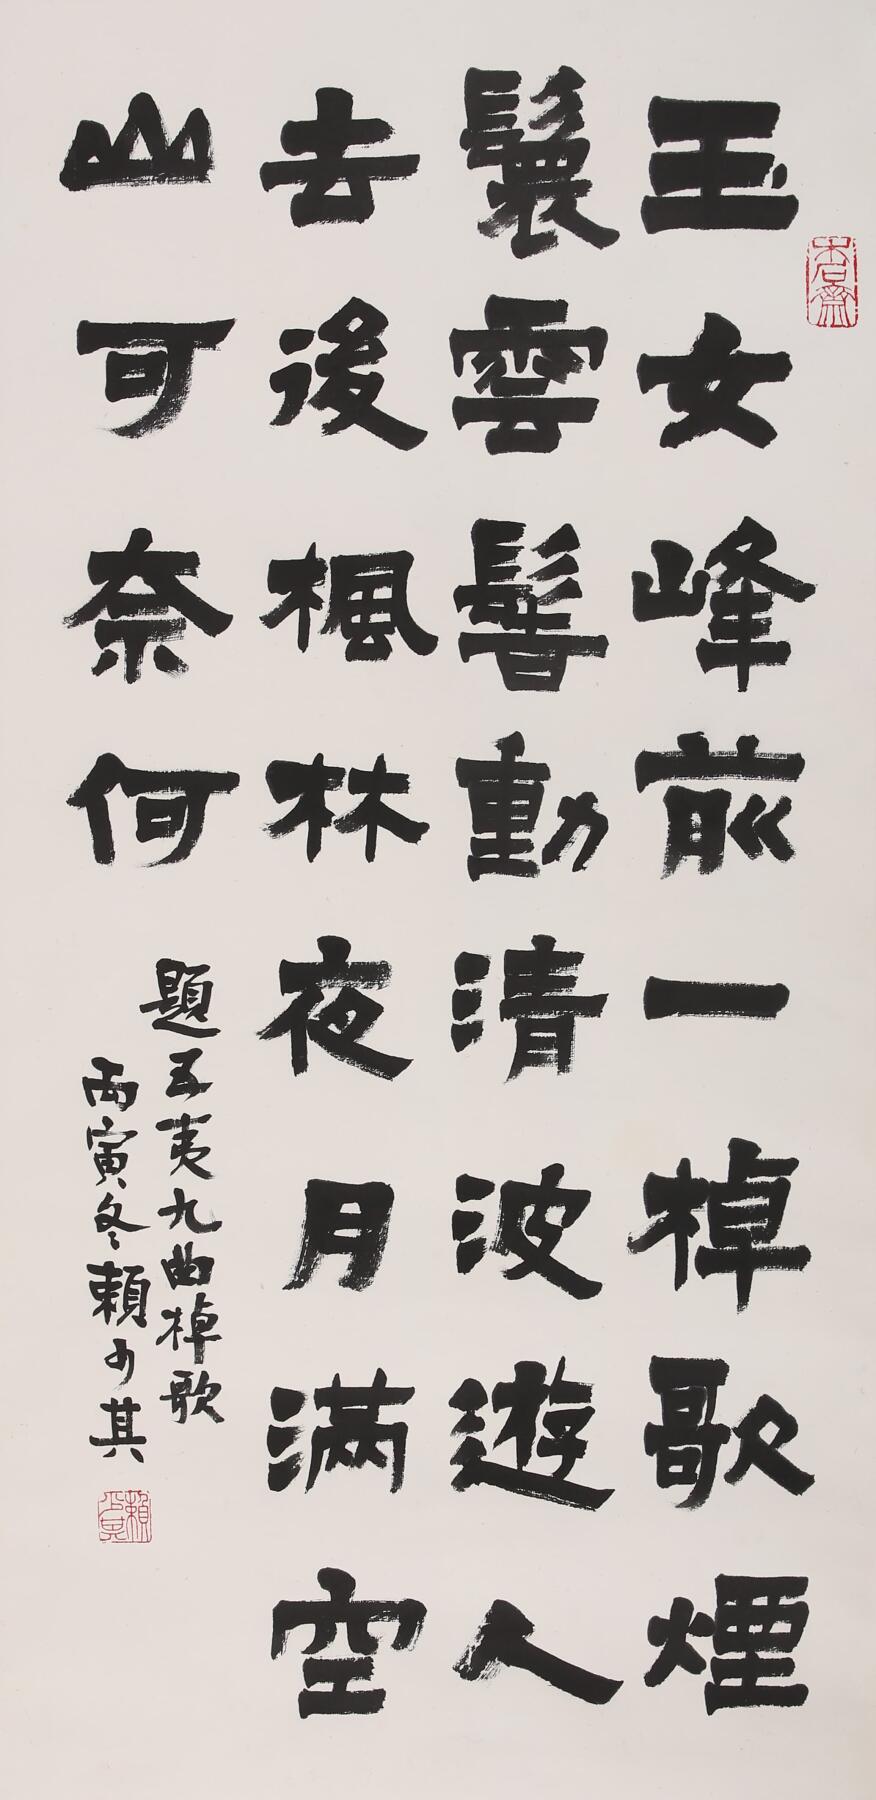 玉女峰前一棹歌煙
鬟雲髻動清波遊人
去後楓林夜月滿空
山可奈何
題五夷九曲棹歌
丙寅冬賴少其
木石齋
賴少其